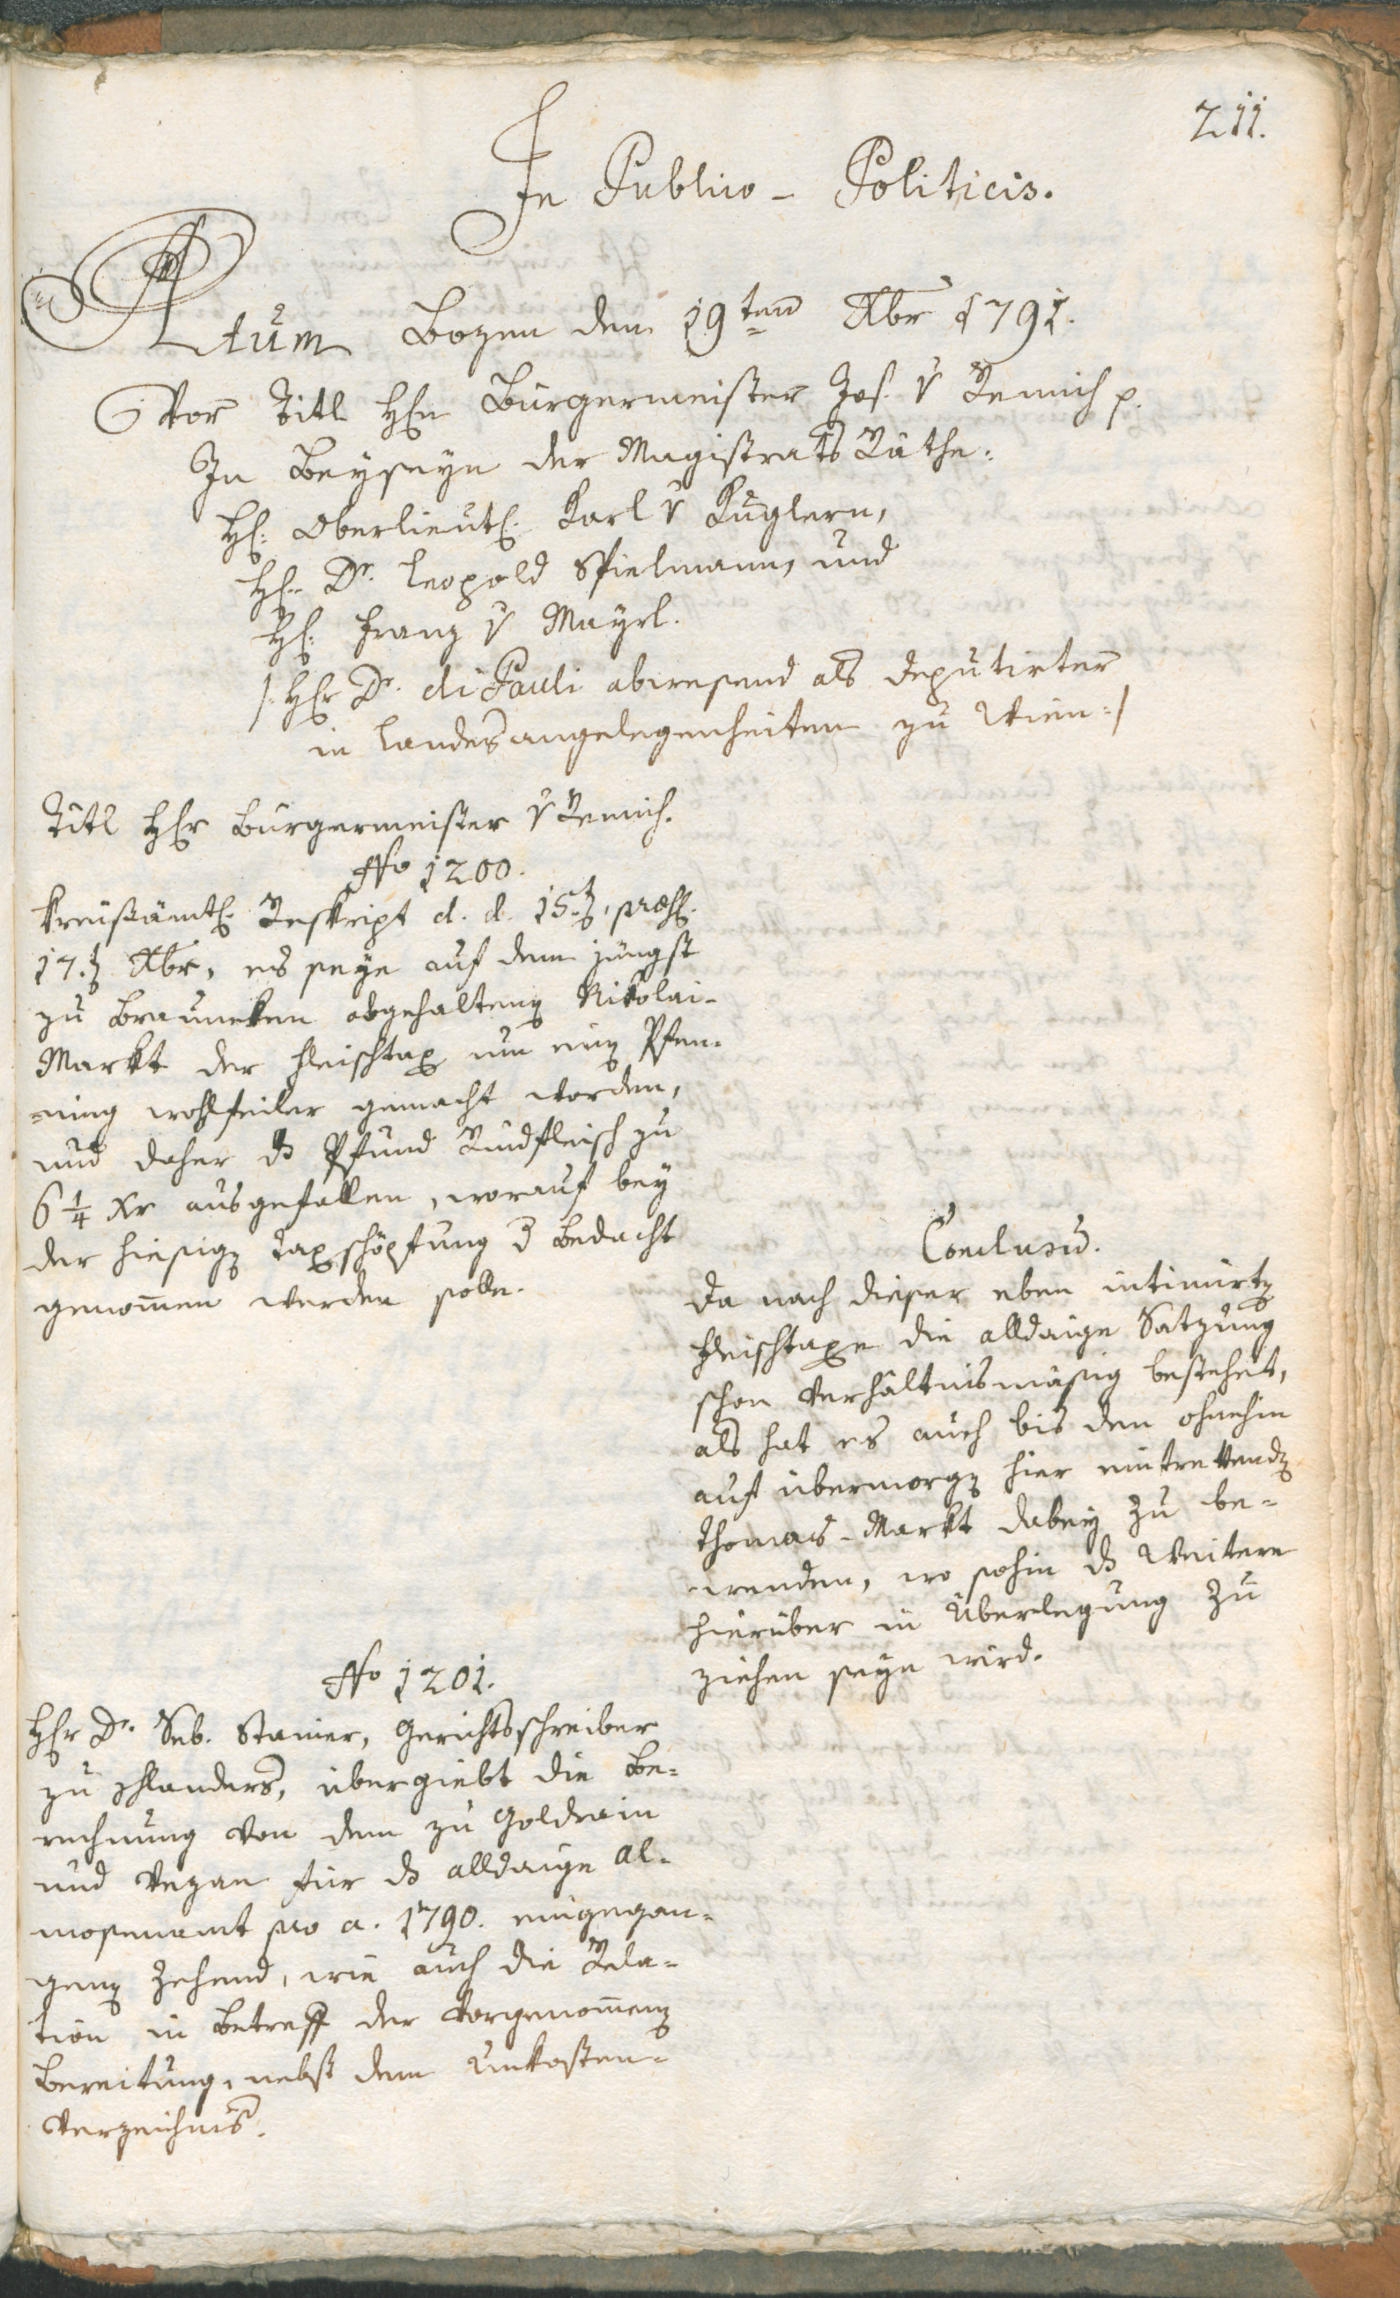 211.
In Publico - Politicis.
Actum Bozen den 19ten Xbr 1791.
Vor Titl Hℓn Bürgermeister Jos. v Remich p.
In Beyseyn der Magistrats Räthe:
Hℓ: Oberlieutℓ. Karl v Kuglern,
Hℓ: Dr. Leopold Spielmann, und
Hℓ: Franz v Mayrl.
/: Hℓr Dr. di Pauli abwesend als Deputirter
in Landesangelegenheiten zu Wien :/
Titl Hℓr Burgermeister v Remich.
No 1200.
Kreisämtℓ. Reskript d. d. 15.t, præsℓ.
17.t Xbr, es seye auf dem jüngst
zu Braunekken abgehalten Nikolai-
Markt der Fleischtax um ein Pfen-
-ning wohlfeiler gemacht worden,
und daher ds Pfund Rindfleisch zu
6 1/4 Xr ausgefallen, worauf bey
der hiesigen Taxschöpfung d Bedacht
genommen werden solle.
Conclusu.
Da nach dieser eben intimirten
Fleischtaxe die alldaige Satzung
schon verhältnismäsig bestehet,
als hat es auch bis den ohnehin
auf übermorgen hier eintrettenden
Thomas-Markt dabey zu be-
-wenden, wo sohin ds Weitere
hierüber in Überlegung zu
ziehen seyn wird.
No 1201.
Hℓr Dr. Seb. Stainer, Gerichtsschreiber
zu Schlanders, übergiebt die Be-
rechnung von dem zu Goldrain
und Vezan für ds alldaige Al-
mosenamt pro a. 1790. eingegan-
genen Zehend, wie auch die Rela-
tion in Betreff der vorgenommenen
Bereitung, nebst dem Unkosten-
Verzeichnis.